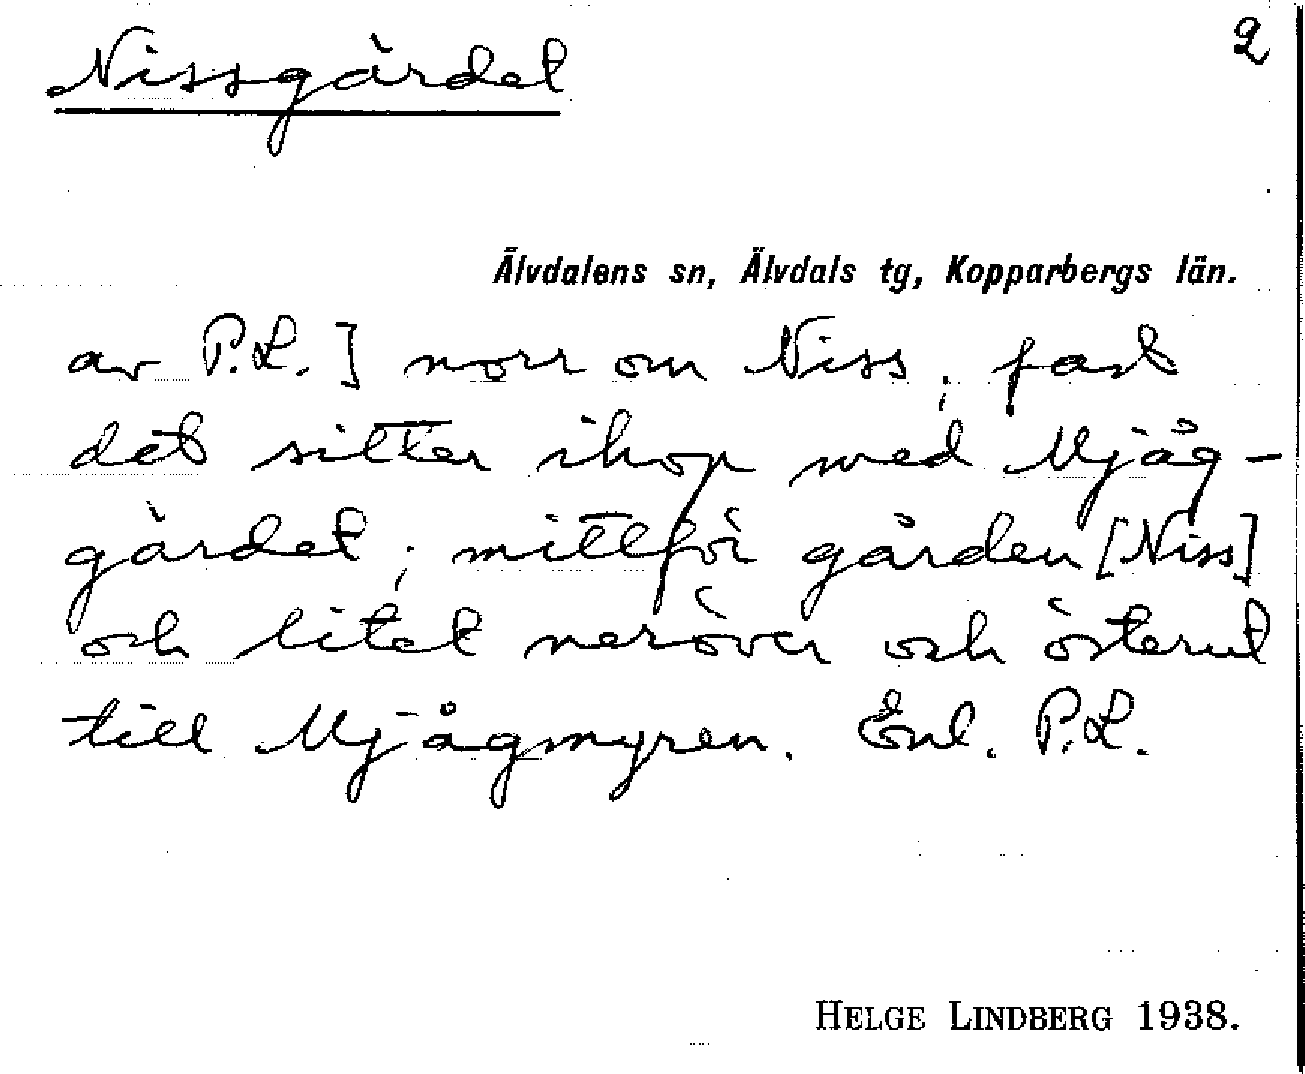 Nissgärdet
2
Älvdalens sn, Älvdals tg, Kopparbergs län.
av P.L.] norr om Niss; fast
det sitter ihop med Mjåg-
gärdet; mittför gården [Niss]
och litet neröver och österut
till Mjågmyren. Enl. P.L.
HELGE LINDBERG 1938.